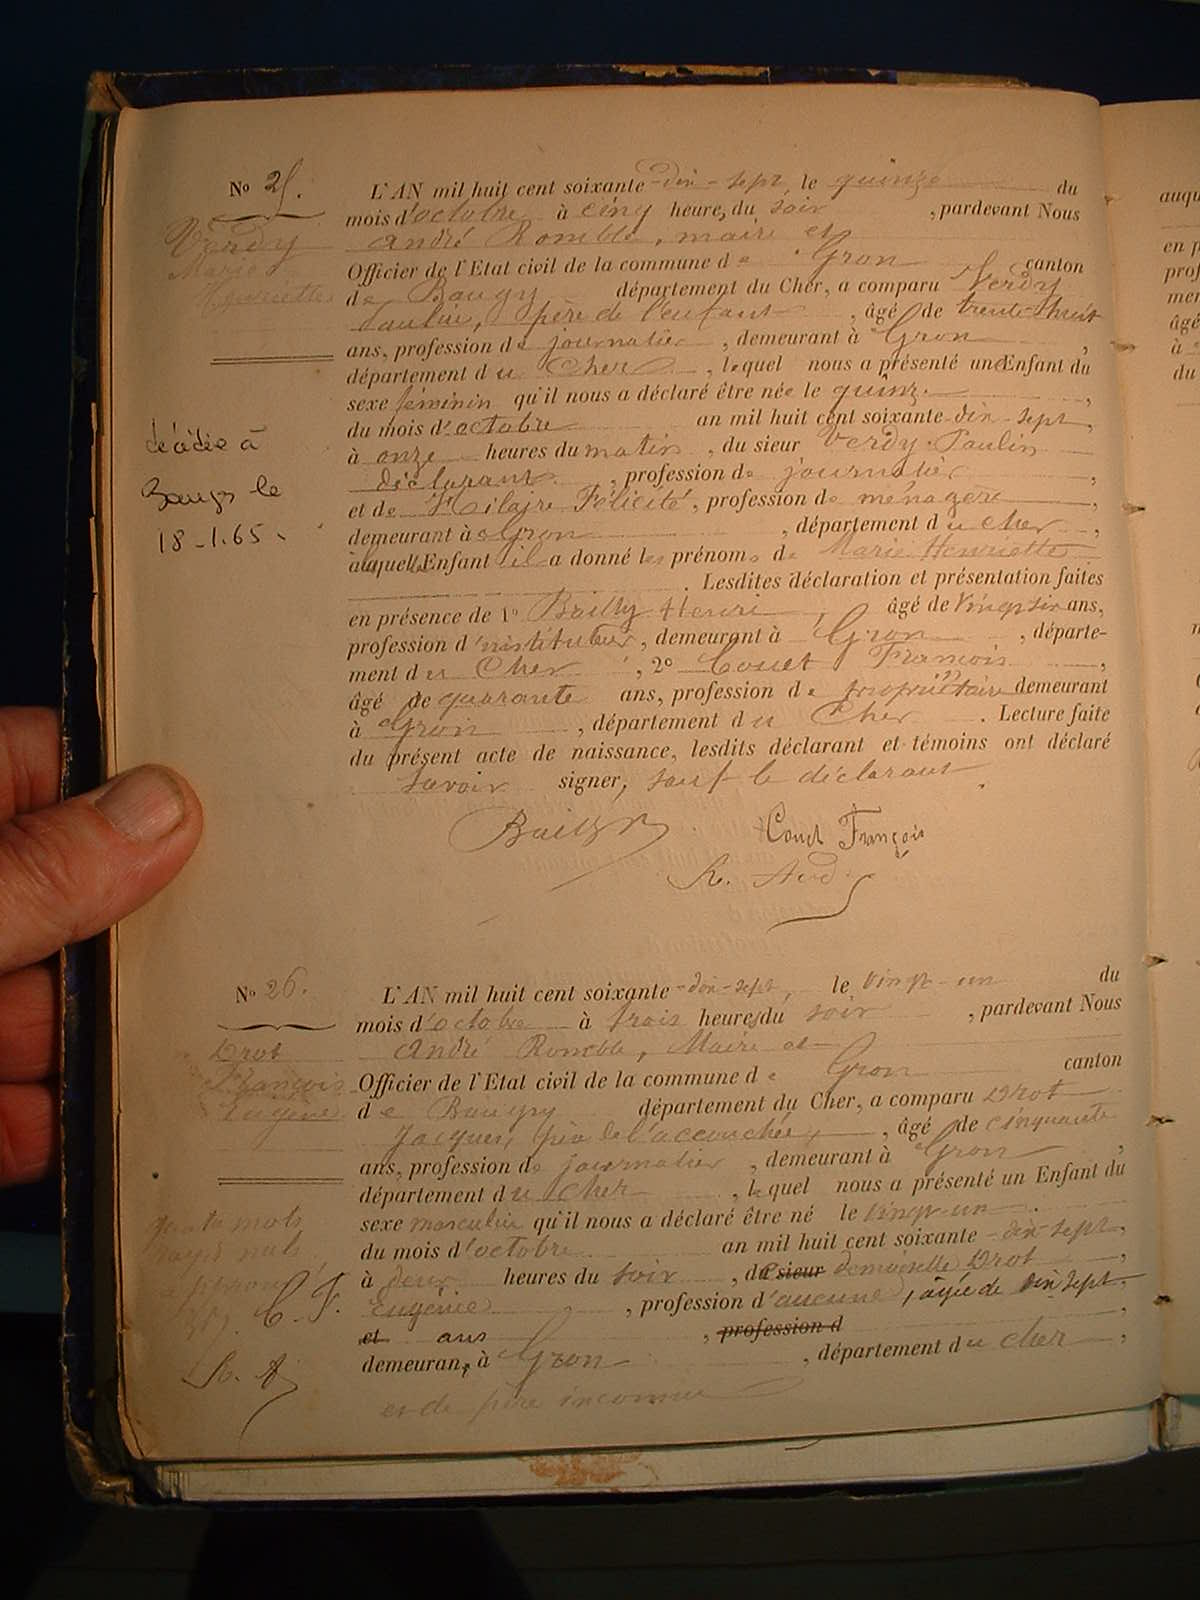 No 25.
Verdy
Marie
Henriette
décédée à
Baugy le
18-1.65.
L'AN mil huit cent soixante-dix-sept, le quinze du
mois d'octobre à cinq heures du soir, pardevant Nous
André Romble, maire et
Officier de l'Etat civil de la commune de Gron canton
de Baugy département du Cher, a comparu Verdy
Paulin, père de l'enfant, âgé de trente-huit
ans, profession de journalier, demeurant à Gron,
département du Cher, lequel nous a présenté un Enfant du
sexe féminin qu'il nous a déclaré être née le quinze
du mois d'octobre an mil huit cent soixante-dix-sept,
à onze heures du matin, du sieur Verdy Paulin
déclarant, profession de journalier,
et de Hilaire Félicité, profession de ménagère,
demeurant à Gron, département du Cher,
auquel Enfant il a donné les prénoms de Marie Henriette
. Lesdites déclaration et présentation faites
en présence de 1o Bailly Henri, âgé de vingt six ans,
profession d'instituteur, demeurant à Gron, départe-
ment du Cher, 2o Couet François,
âgé de quarante ans, profession de propriétaire demeurant
à Gron, département du Cher. Lecture faite
du présent acte de naissance, lesdits déclarant et témoins ont déclaré
savoir signer, sauf le déclarant.
Bailly
Couet François
R. And
No 26.
Drot
François
Eugène
quatre mots
rayés nuls
C. F.
R. A
L'AN mil huit cent soixante-dix-sept, le vingt-un du
mois d'octobre à trois heures du soir, pardevant Nous
André Romble, Maire et
Officier de l'Etat civil de la commune de Gron canton
de Baugy département du Cher, a comparu Drot
Jacques, père de l'accouchée, âgé de cinquante
ans, profession de journalier, demeurant à Gron,
département du Cher, lequel nous a présenté un Enfant du
sexe masculin qu'il nous a déclaré être né le vingt-un
du mois d'octobre an mil huit cent soixante-dix-sept,
à deux heures du soir, de sieur demoiselle Drot,
Eugénie, profession d'aucune, âgée de dix sept
et ans, profession d,
demeurant à Gron, département du Cher,
et de père inconnu